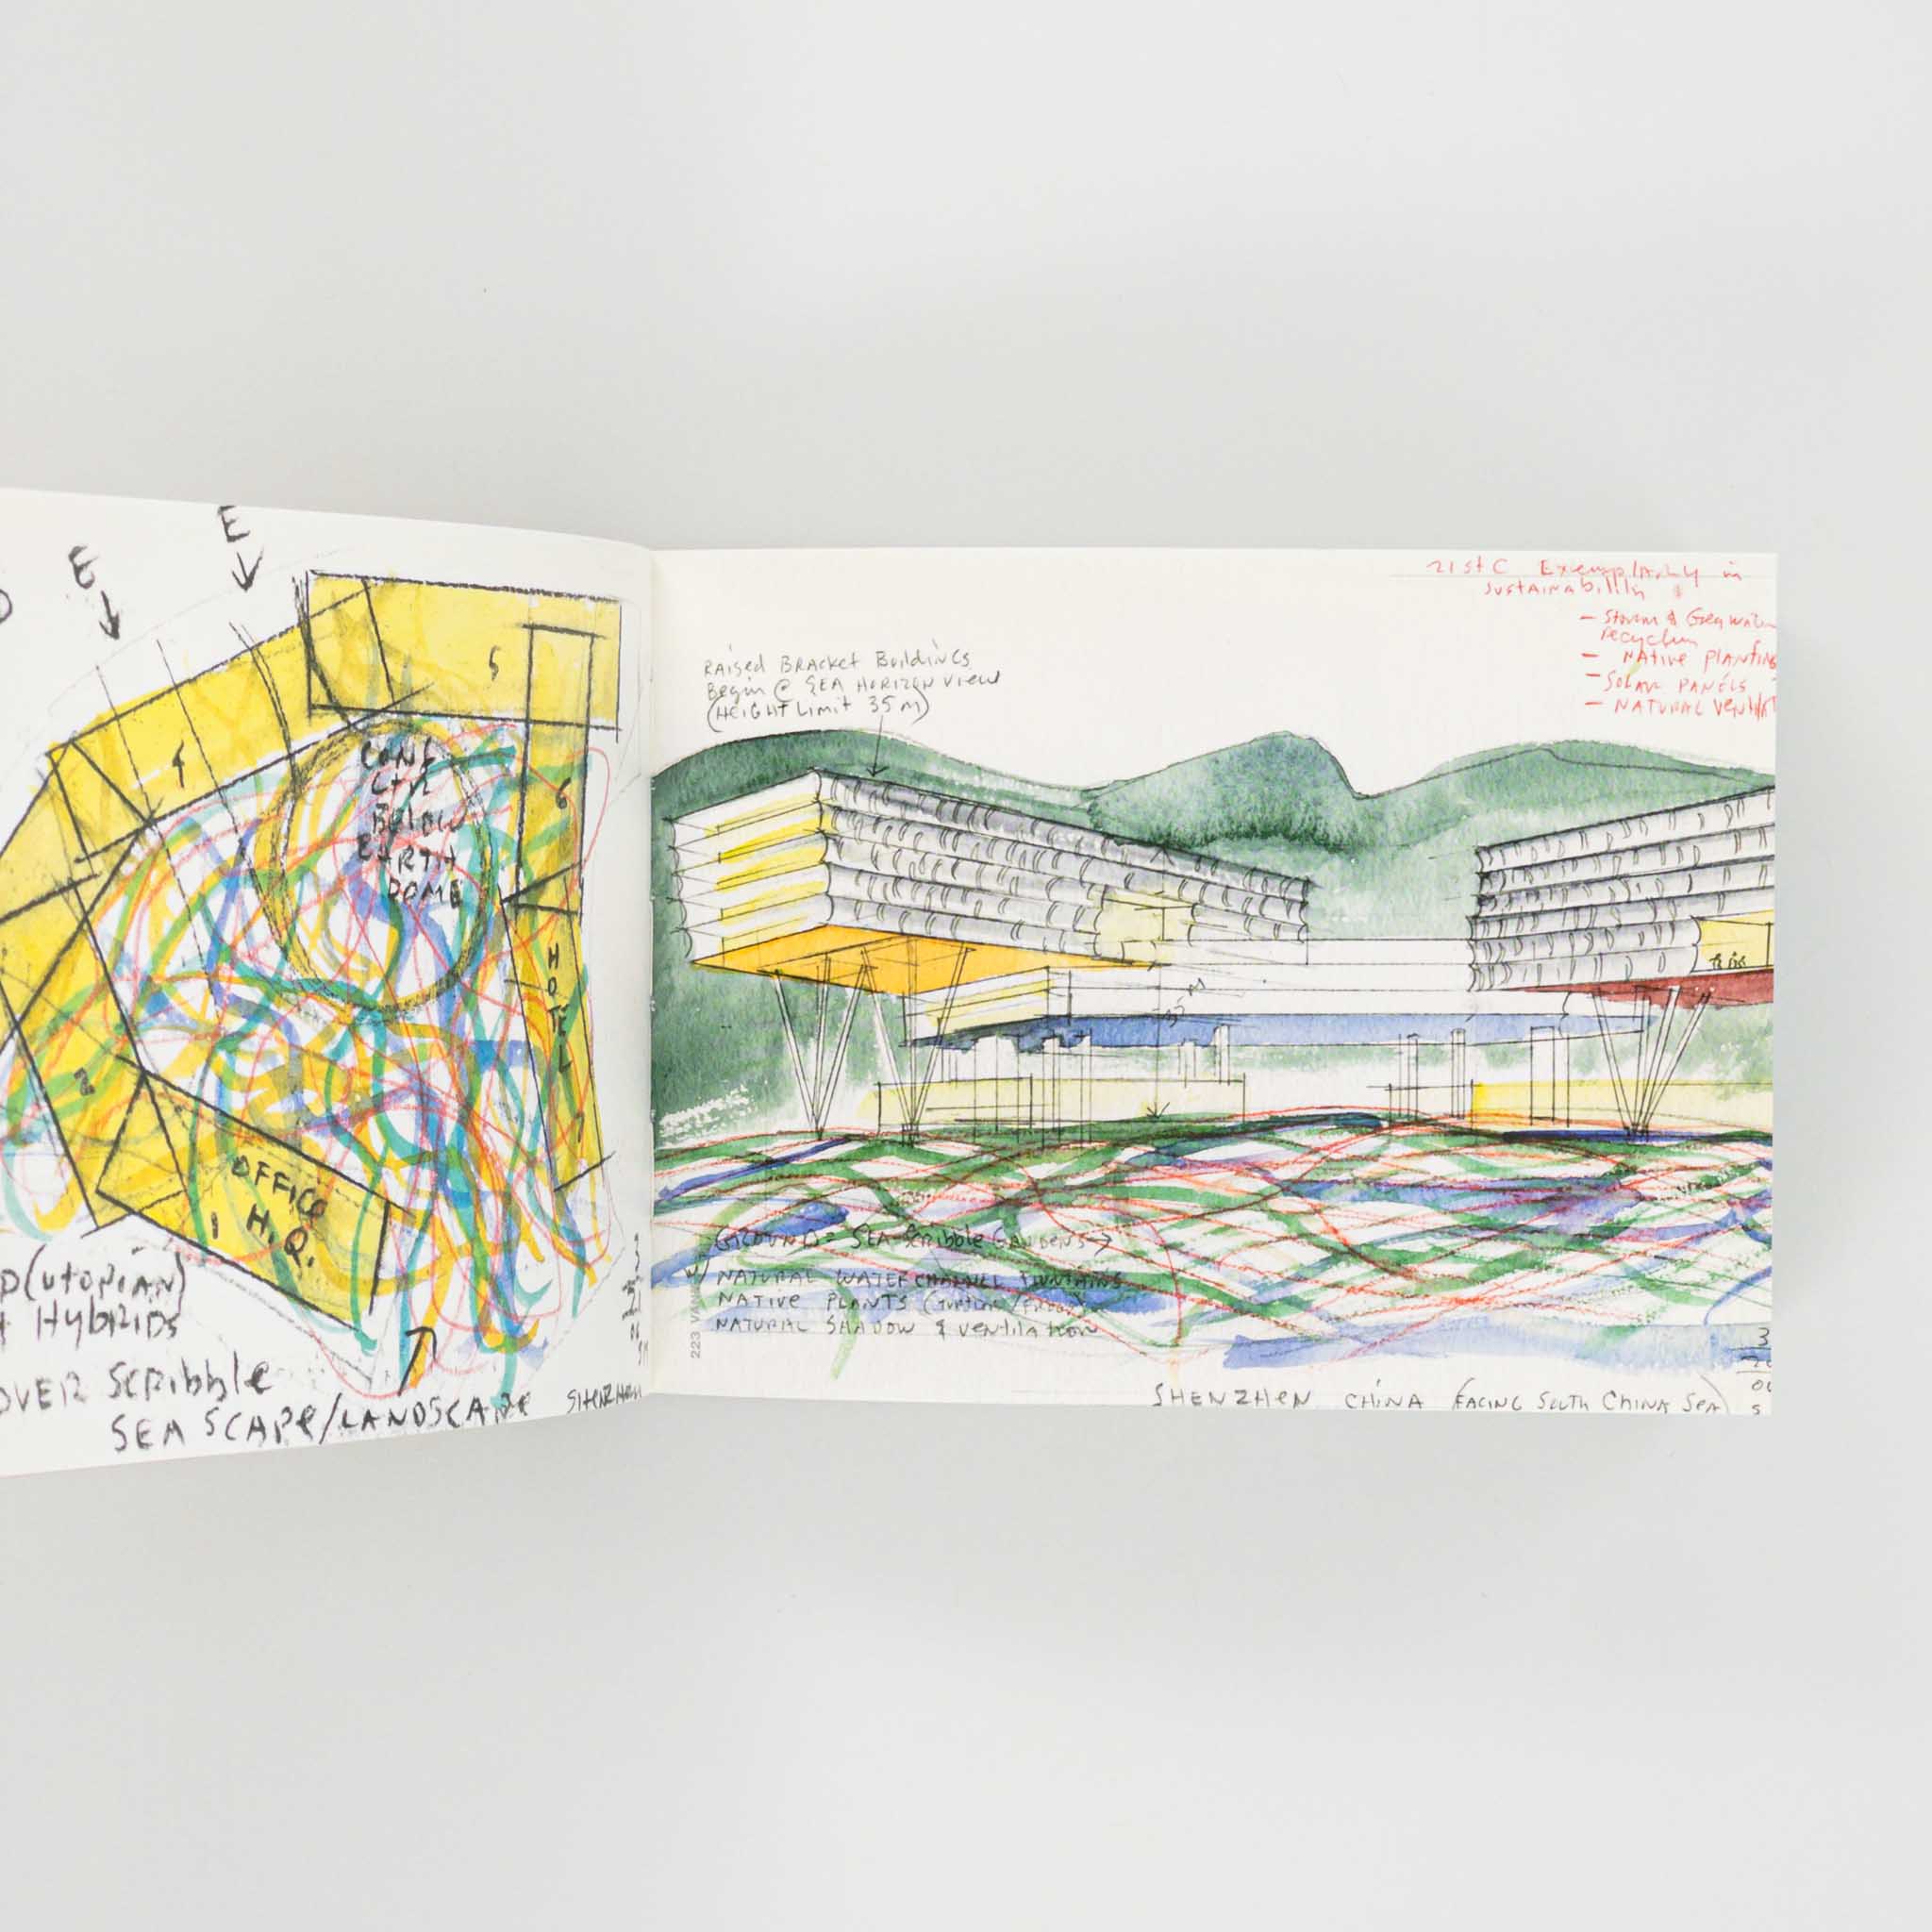 E
E
5
4
CONF
CTR
BELOW
EARTH
DOME
6
HOTEL
7
2
OFFICE
1 H.Q.
(UTOPIAN)
HybRiDS
OVER SCRibble
SEASCAPE/LANDSCAPE SHENZHEN
RAISED BRACKET BuildiNGS
Begin @ SEA HORIZON view
(HEIGHT Limit 35 M)
21st C Exemplary in
SUSTAINAbility
- Storm & Grey water
recyclin
- NATive PlANTiNG
- SOLAR PANELS
- NATURAL Ventilat
35 M
GROUND = SEA-Scribble GARDENS →
w/ NATURAL WATER CHANNEL FOUNTAINS
NATIVE PLANTS
NATURAL SHADOW & ventilation
223
SHENZHEN CHINA (FACING South CHINA SeA)